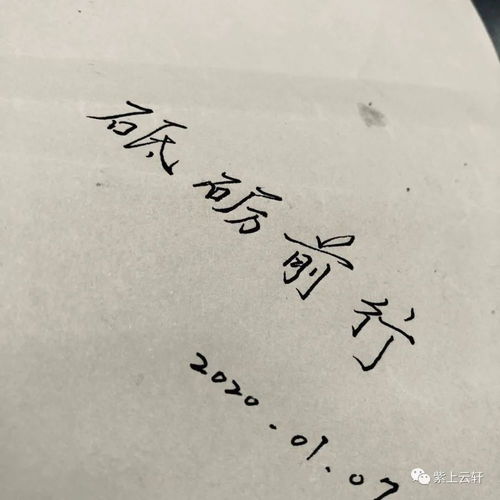 砥砺前行
2020.01.07
紫上云轩